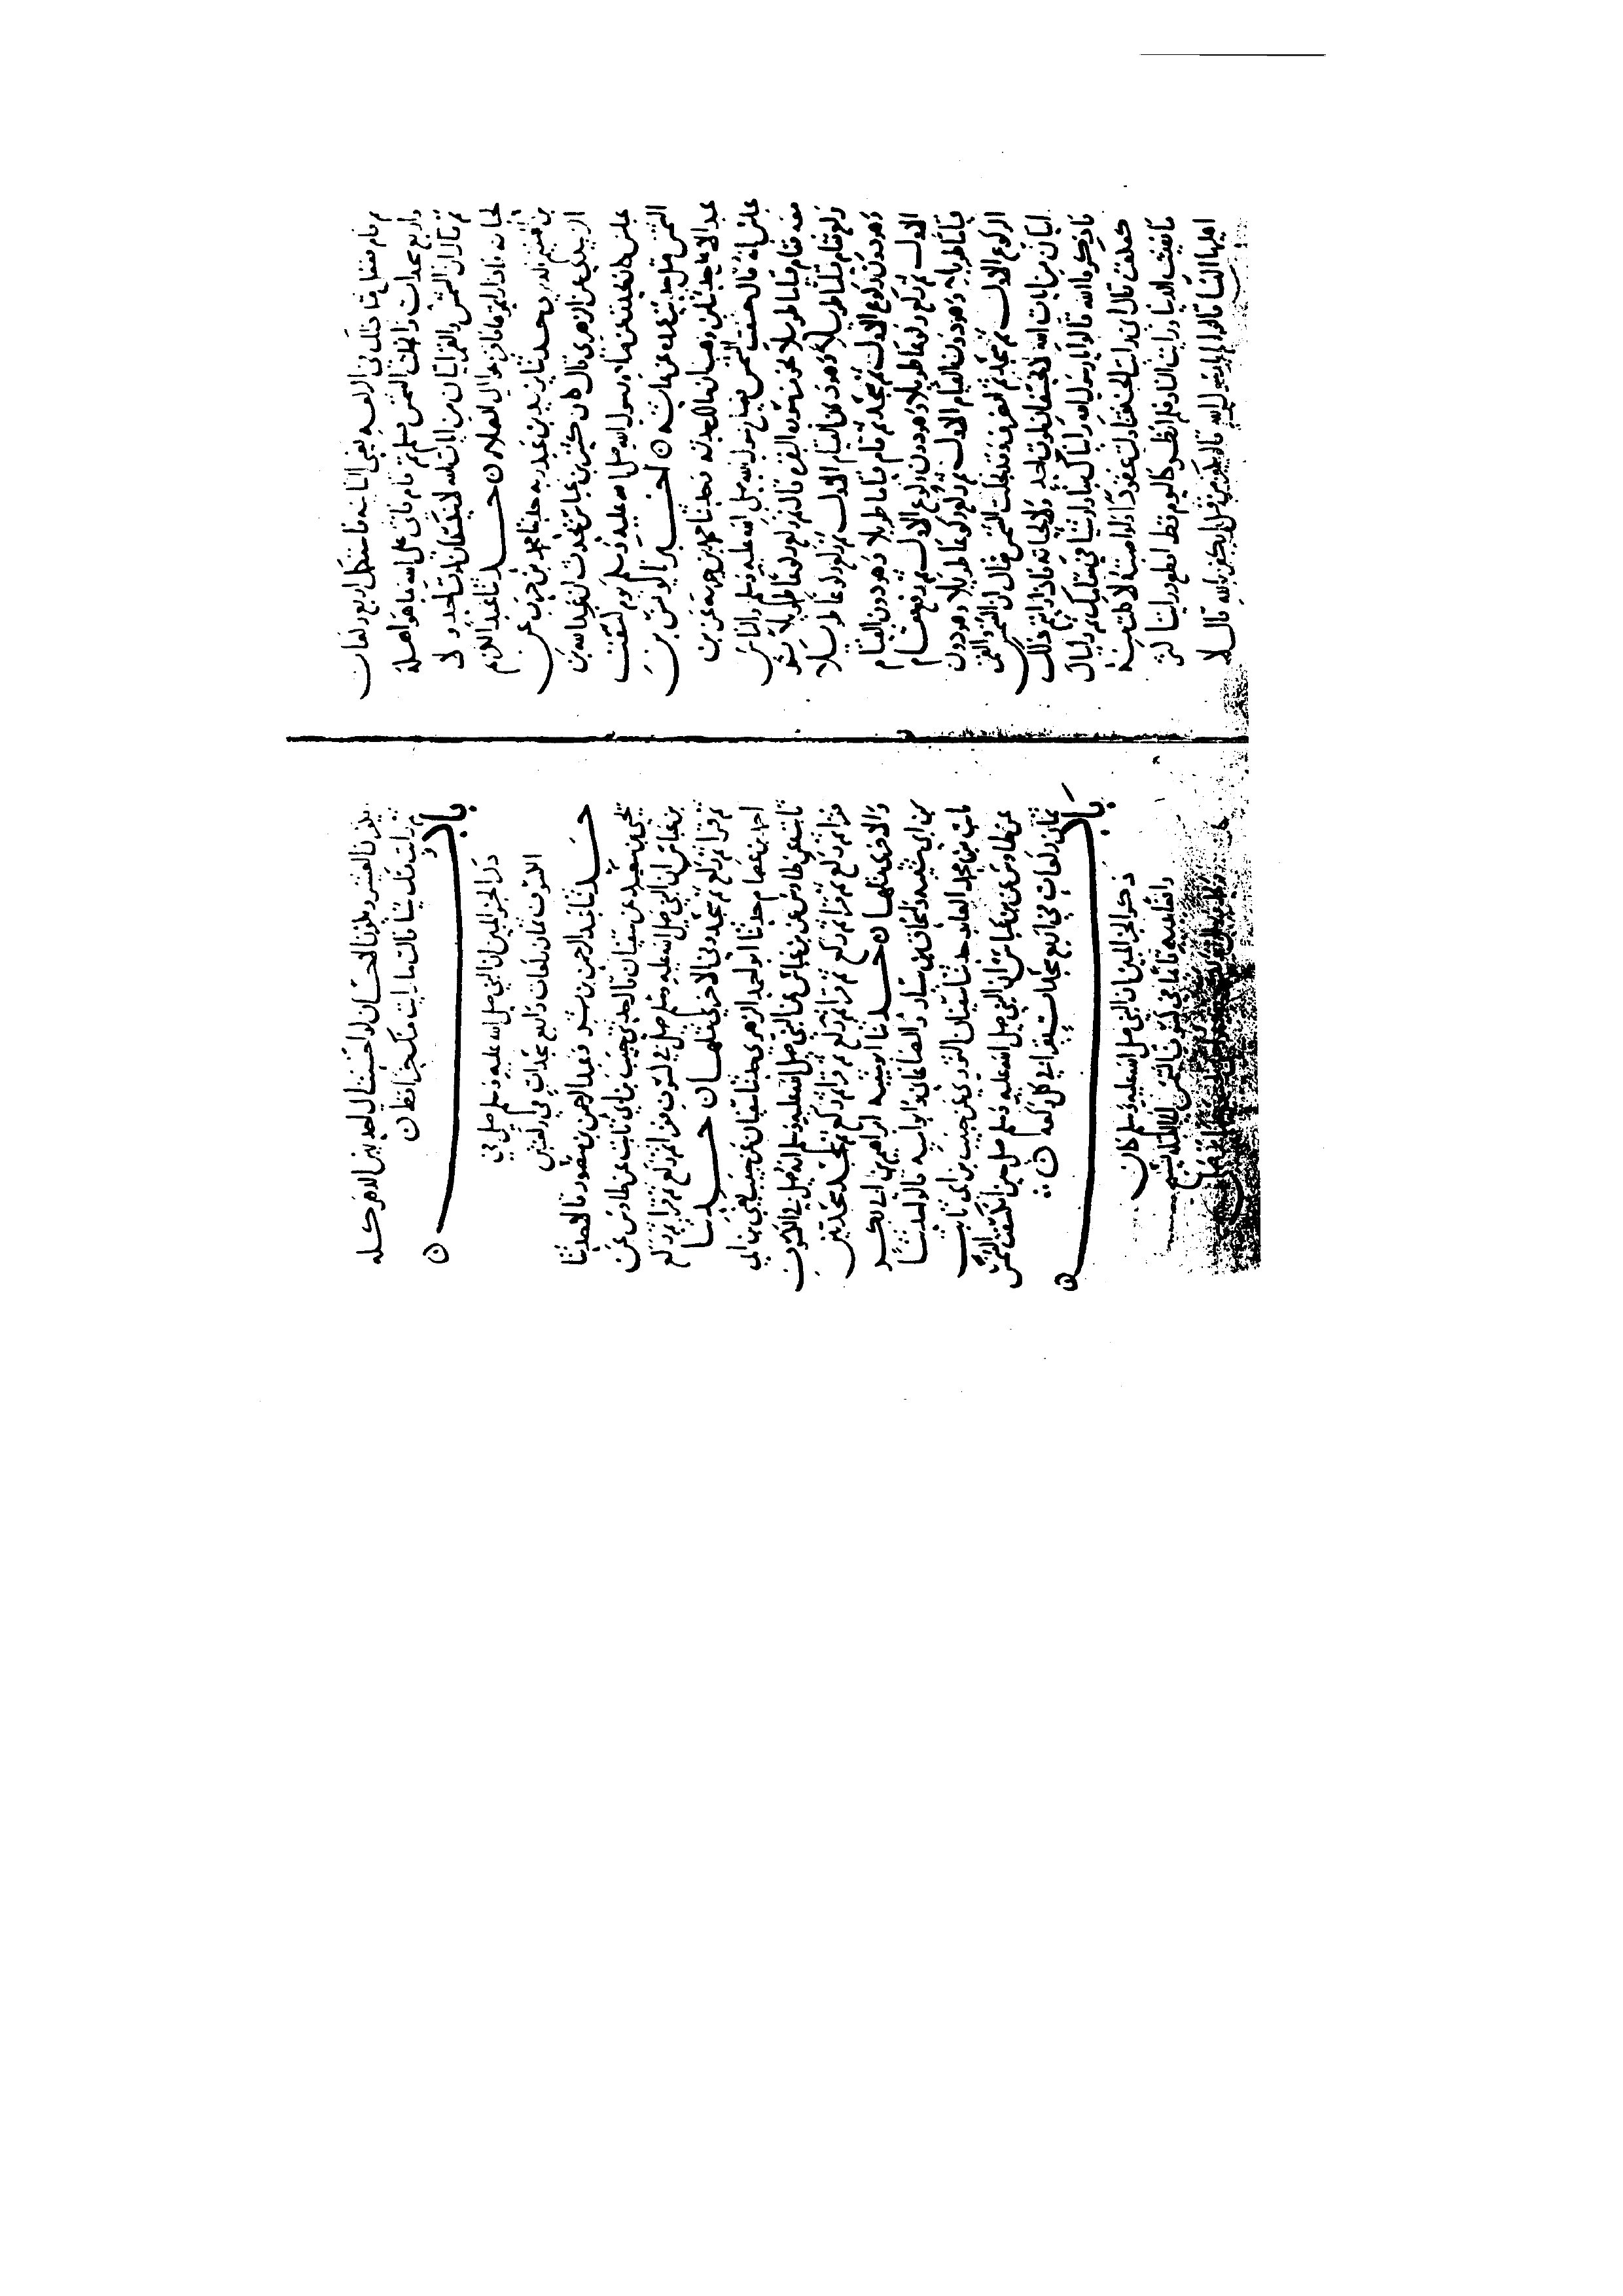 ثم قام ففعل مثل ذلك في الركعه يعني الثانيه فاستكمل اربع ركعات
واربع سجدات وانجلت الشمس فسلم ثم قام فاثنى على الله بما هو اهله
ثم قال ان الشمس والقمر ايتان من ايات الله لا ينكسفان لموت احد ولا
لحياته فاذا رايتموهما فافزعوا الى الصلاه حدثنا عبد الكريم
بن الهيثم حدثنا يزيد بن عبد ربه حدثنا محمد بن حرب عن
الزبيدي عن الزهري قال كان كثير بن عباس يحدث ان عبد الله بن
عباس كان يحدث عن صلاه رسول الله صلى الله عليه وسلم يوم كسفت
الشمس مثل حديث عروه عن عائشه اخبرنا يونس بن
عبد الاعلى حدثنا بن وهب ان مالكا حدثه وحدثنا محمد بن حيويه عن بن
عباس انه قال خسفت الشمس فصلى رسول الله صلى الله عليه وسلم والناس
معه فقام قياما طويلا نحو من سوره البقره قال ثم ركع ركوعا طويلا ثم
رفع فقام قياما طويلا وهو دون القيام الاول ثم ركع ركوعا طويلا
وهو دون الركوع الاول ثم سجد ثم قام قياما طويلا وهو دون القيام
الاول ثم ركع ركوعا طويلا وهو دون الركوع الاول ثم رفع فقام
قياما طويلا وهو دون القيام الاول ثم ركع ركوعا طويلا وهو دون
الركوع الاول ثم سجد ثم انصرف وقد تجلت الشمس فقال ان الشمس والقمر
ايتان من ايات الله لا يخسفان لموت احد ولا لحياته فاذا رايتم ذلك
فاذكروا الله قالوا يا رسول الله رايناك تناولت شيئا في مقامك ثم رايناك
تكعكعت قال اني رايت الجنه فتناولت عنقودا ولو اصبته لاكلتم منه
ما بقيت الدنيا ورايت النار فلم انظر كاليوم قط افظع ورايت اكثر
اهلها النسا قالوا لم يا رسول الله قال بكفرهن قيل ايكفرن بالله قال لا
يكفرن العشير ويكفرن الاحسان لو احسنت الى احديهن الدهر كله
ثم رات منك شيئا قالت ما رايت منك خيرا قط
باب
ذكر الخبر المبين ان النبي صلى الله عليه وسلم صلى في
الكسوف ثمان ركعات واربع سجدات في ركعتين
حدثنا عبد الرحمن بن بشر وعبد الرحمن بن منصور قالا حدثنا
يحيى بن سعيد عن سفيان قال حدثني حبيب بن ابي ثابت عن طاوس عن
بن عباس ان النبي صلى الله عليه وسلم صلى في كسوف فقرا ثم ركع ثم قرا ثم ركع
ثم قرا ثم ركع ثم سجد وفي الاخرى مثلها حدثنا
احمد بن عصام حدثنا ابو احمد الزهري حدثنا سفيان عن حبيب يعني بن ابي
ثابت عن طاوس عن بن عباس عن النبي صلى الله عليه وسلم انه صلى في الكسوف
فقرا ثم ركع ثم قرا ثم ركع ثم قرا ثم ركع ثم قرا ثم ركع ثم سجد سجدتين
والاخرى مثلها حدثنا ابو شيبه ابراهيم بن ابي بكر
بن ابي شيبه واسحاق بن سيار والصاغاني وابو اميه قالوا حدثنا
ثابت بن محمد العابد حدثنا سفيان الثوري عن حبيب بن ابي ثابت
عن طاوس عن بن عباس ان النبي صلى الله عليه وسلم صلى حين انكسفت الشمس
ثمان ركعات في اربع سجدات يقرا في كل ركعه
باب
ذكر الخبر المبين ان النبي صلى الله عليه وسلم كان